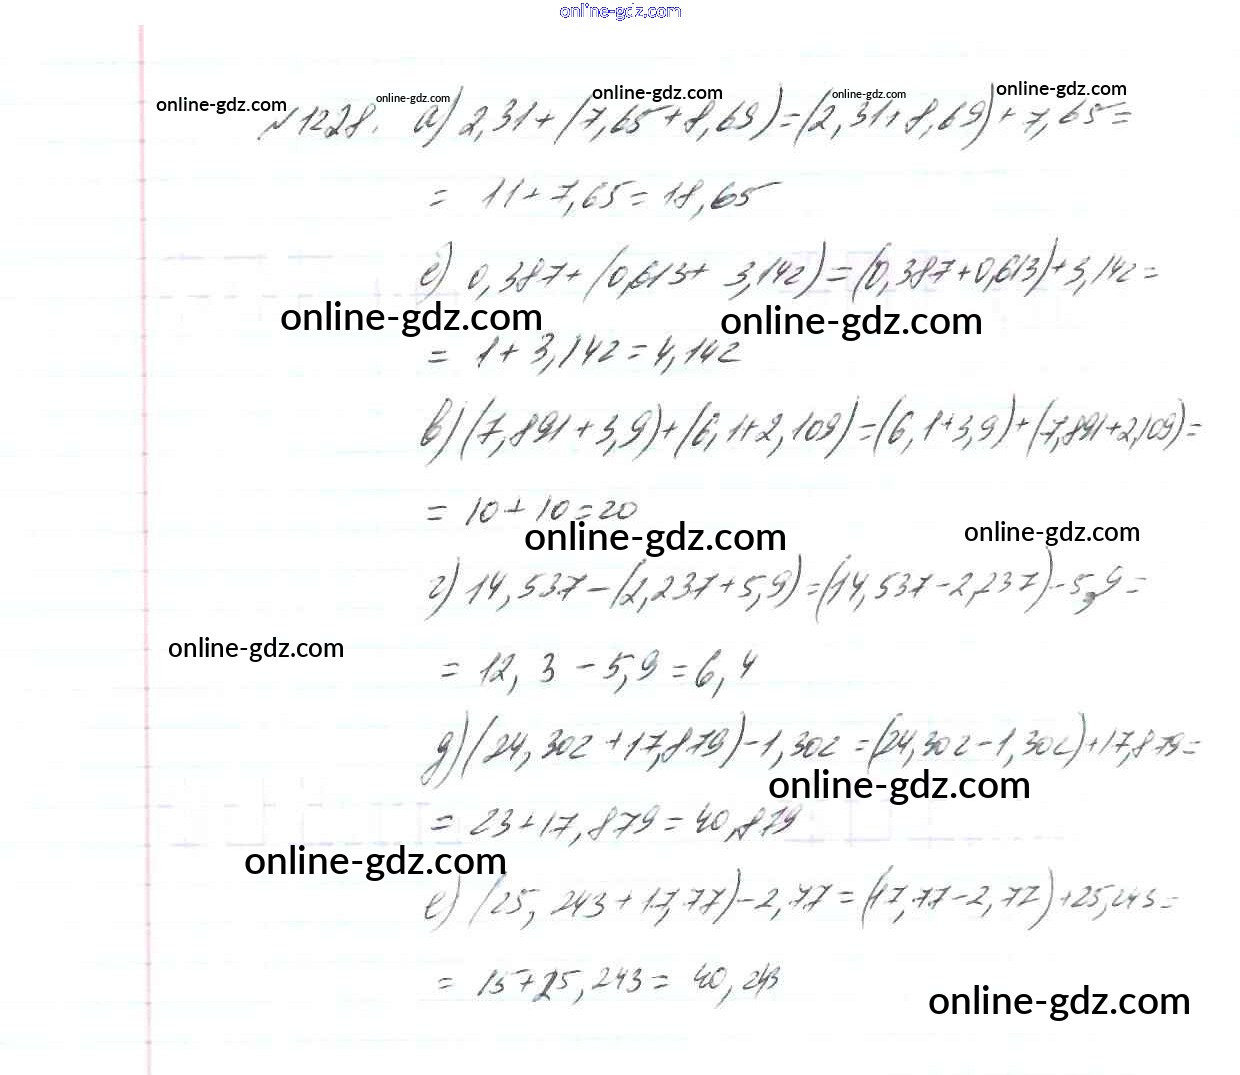 online-gdz.com
online-gdz.com online-gdz.com online-gdz.com online-gdz.com online-gdz.com
№1228. а) 2,31 + (7,65 + 8,69) = (2,31 + 8,69) + 7,65 =
= 11 + 7,65 = 18,65
е) 0,387 + (0,613 + 3,142) = (0,387 + 0,613) + 3,142 =
online-gdz.com online-gdz.com
= 1 + 3,142 = 4,142
в) (7,891 + 3,9) + (6,1 + 2,109) = (6,1 + 3,9) + (7,891 + 2,109) =
= 10 + 10 = 20
online-gdz.com online-gdz.com
г) 14,537 - (2,237 + 5,9) = (14,537 - 2,237) - 5,9 =
online-gdz.com
= 12,3 - 5,9 = 6,4
д) (24,302 + 17,879) - 1,302 = (24,302 - 1,302) + 17,879 =
online-gdz.com
= 23 + 17,879 = 40,879
online-gdz.com
е) (25,243 + 17,77) - 2,77 = (17,77 - 2,77) + 25,243 =
= 15 + 25,243 = 40,243
online-gdz.com